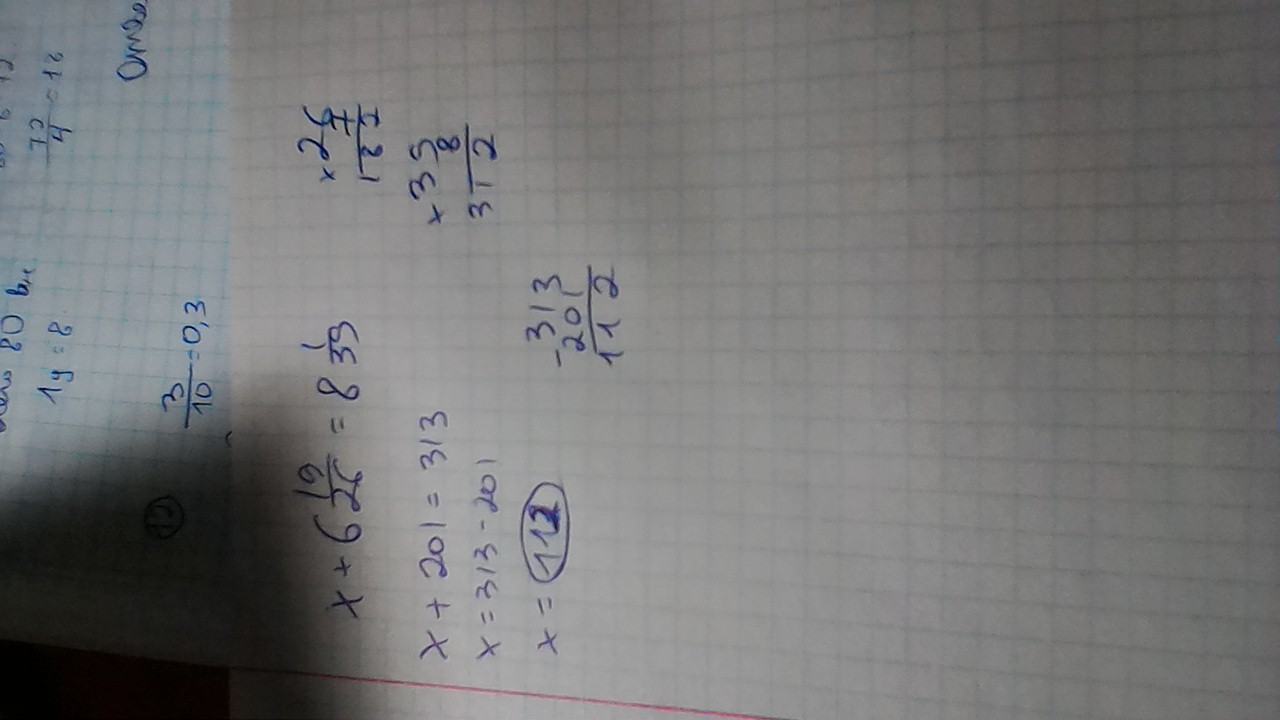 1ч = 8
72/4 = 18
12
3/10 = 0,3
x + 6 19/26 = 8 1/39
x + 201 = 313
x = 313 - 201
x = 112
×26
7
182
×39
8
312
-313
201
112